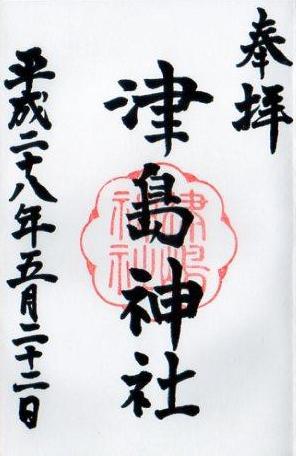 奉拝
津島神社
津嶋神社
平成二十八年五月二十二日